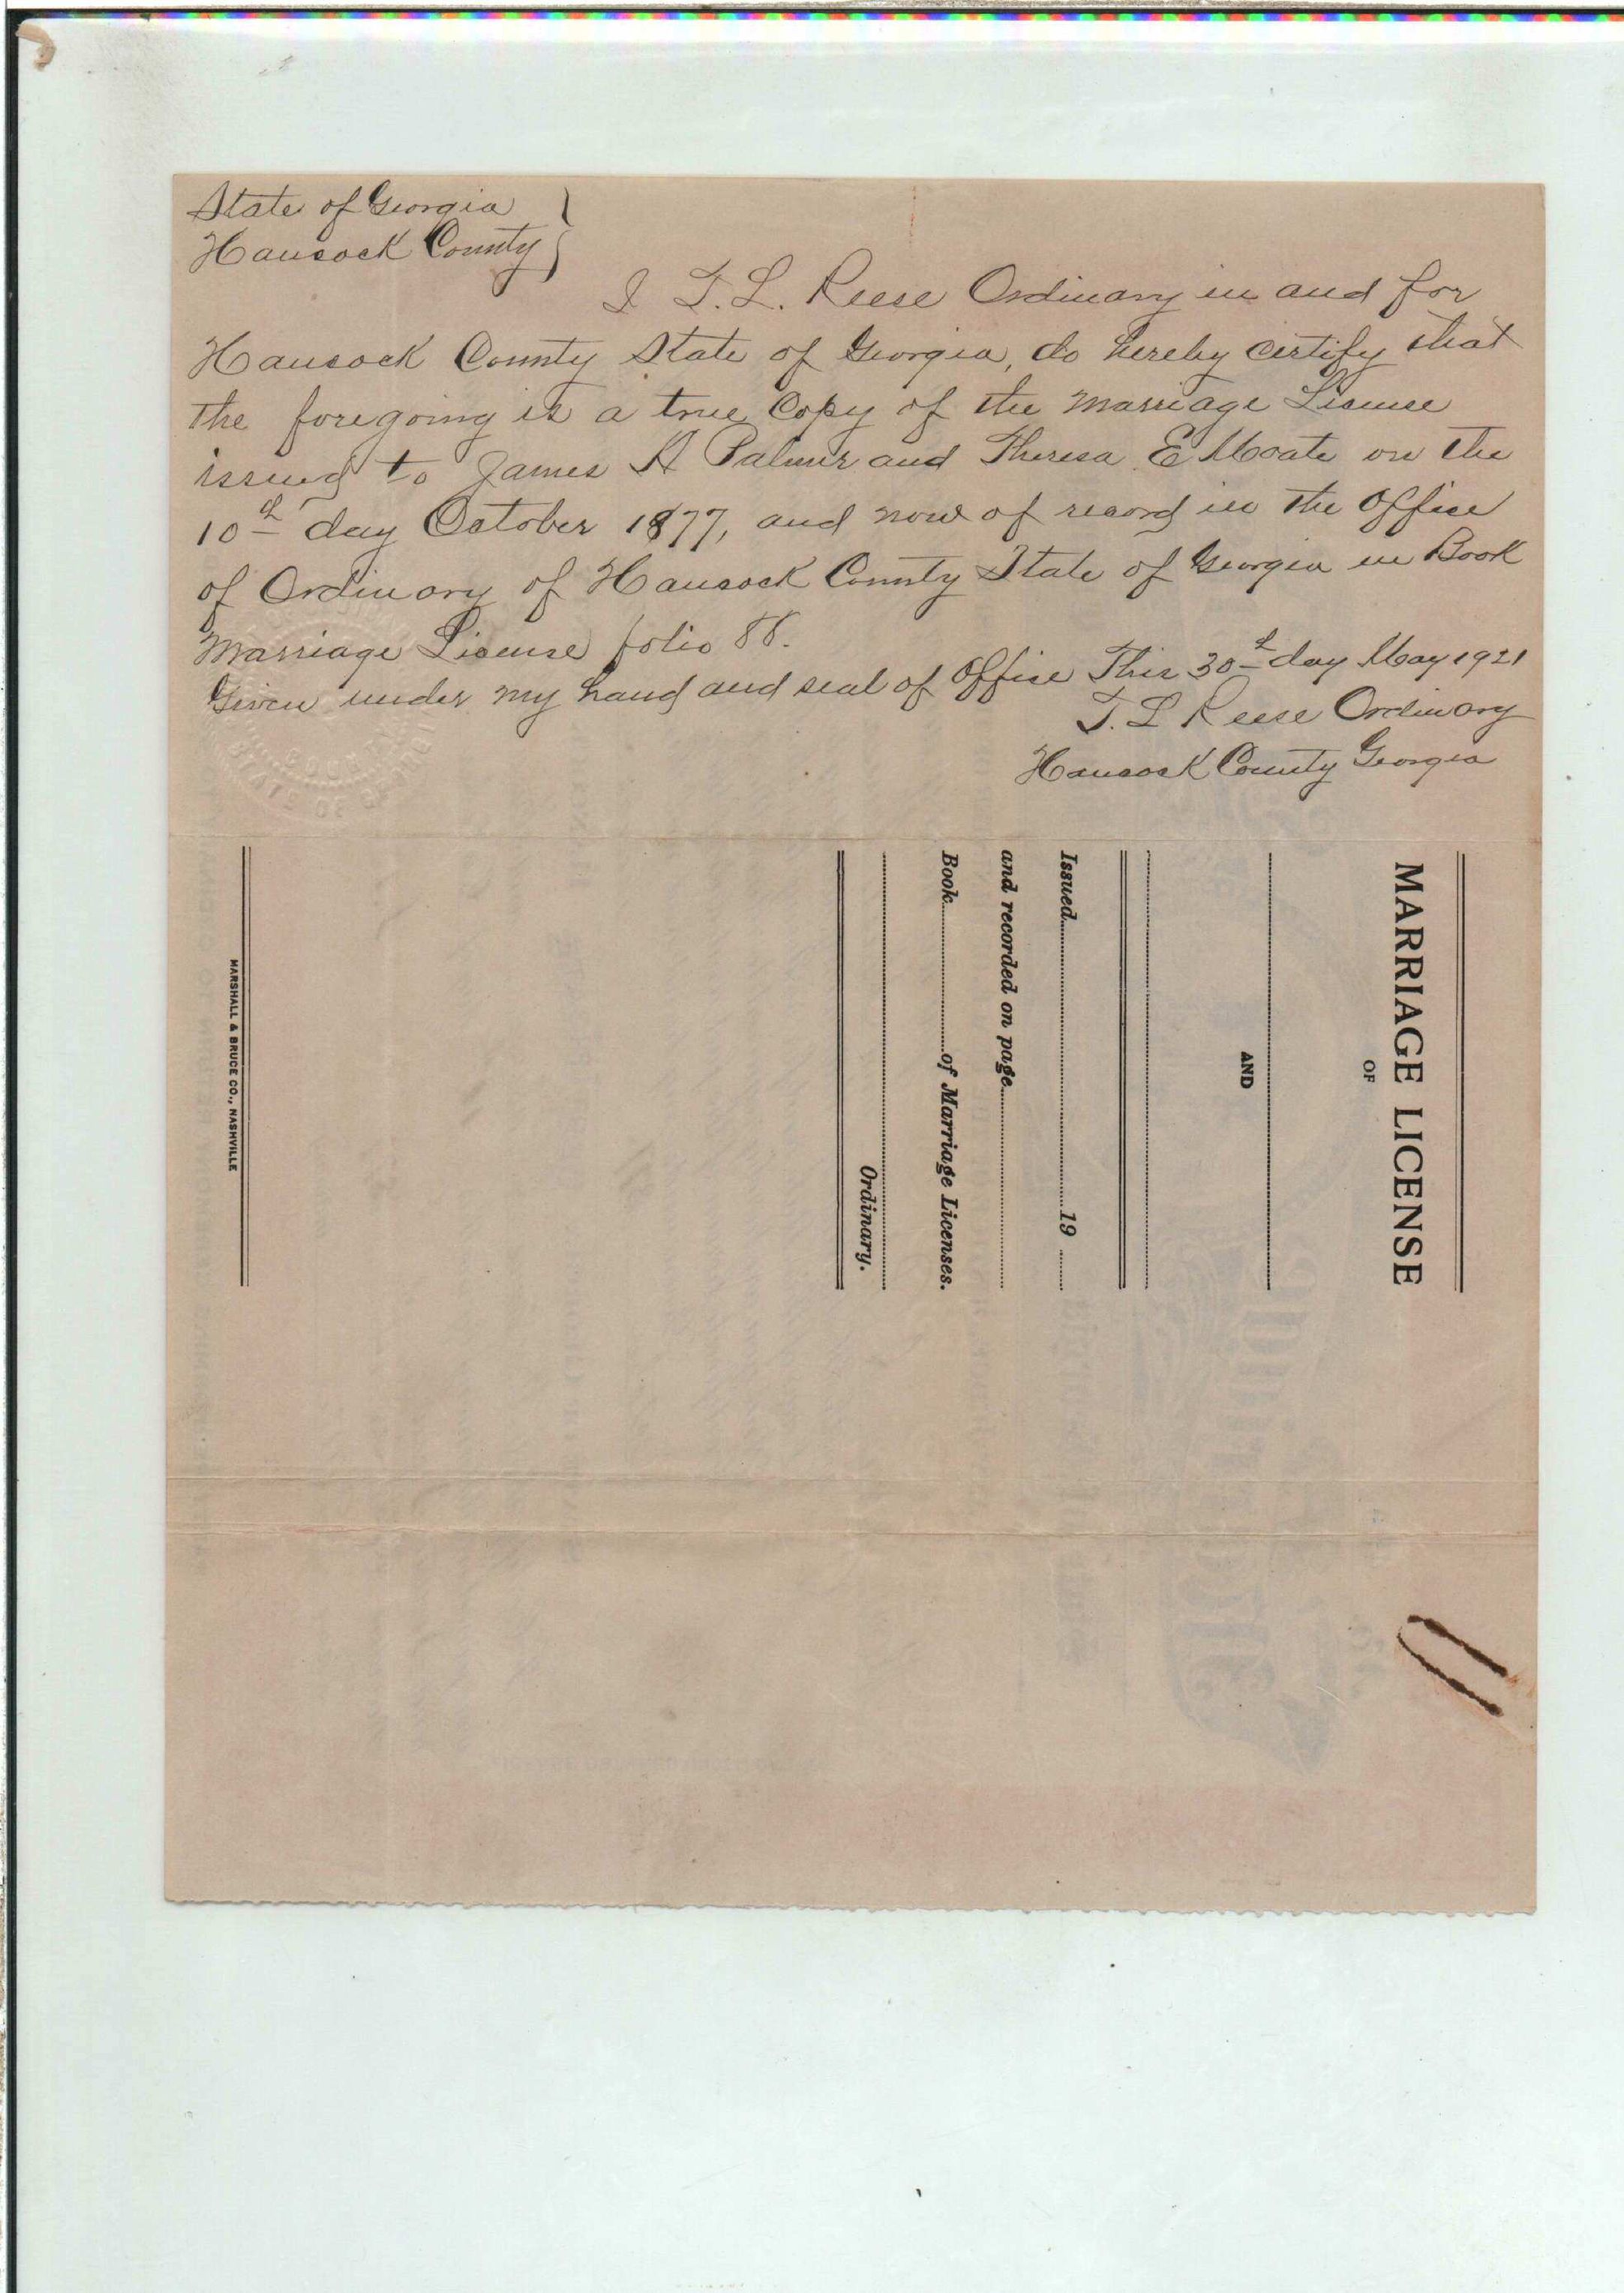 State of Georgia }
Hancock County }
I T. L. Reese Ordinary in and for
Hancock County State of Georgia, do hereby certify that
the foregoing is a true Copy of the Marriage License
issued to James H Palmer and Theresa E Moate on the
10th day October 1877, and now of record in the Office
of Ordinary of Hancock County State of Georgia in Book
Marriage License folio 88.
Given under my hand and seal of Office This 30th day May 1921
T. L Reese Ordinary
Hancock County Georgia
MARRIAGE LICENSE
OF
AND
Issued 19
and recorded on page
Book of Marriage Licenses.
Ordinary.
MARSHALL & BRUCE CO., NASHVILLE